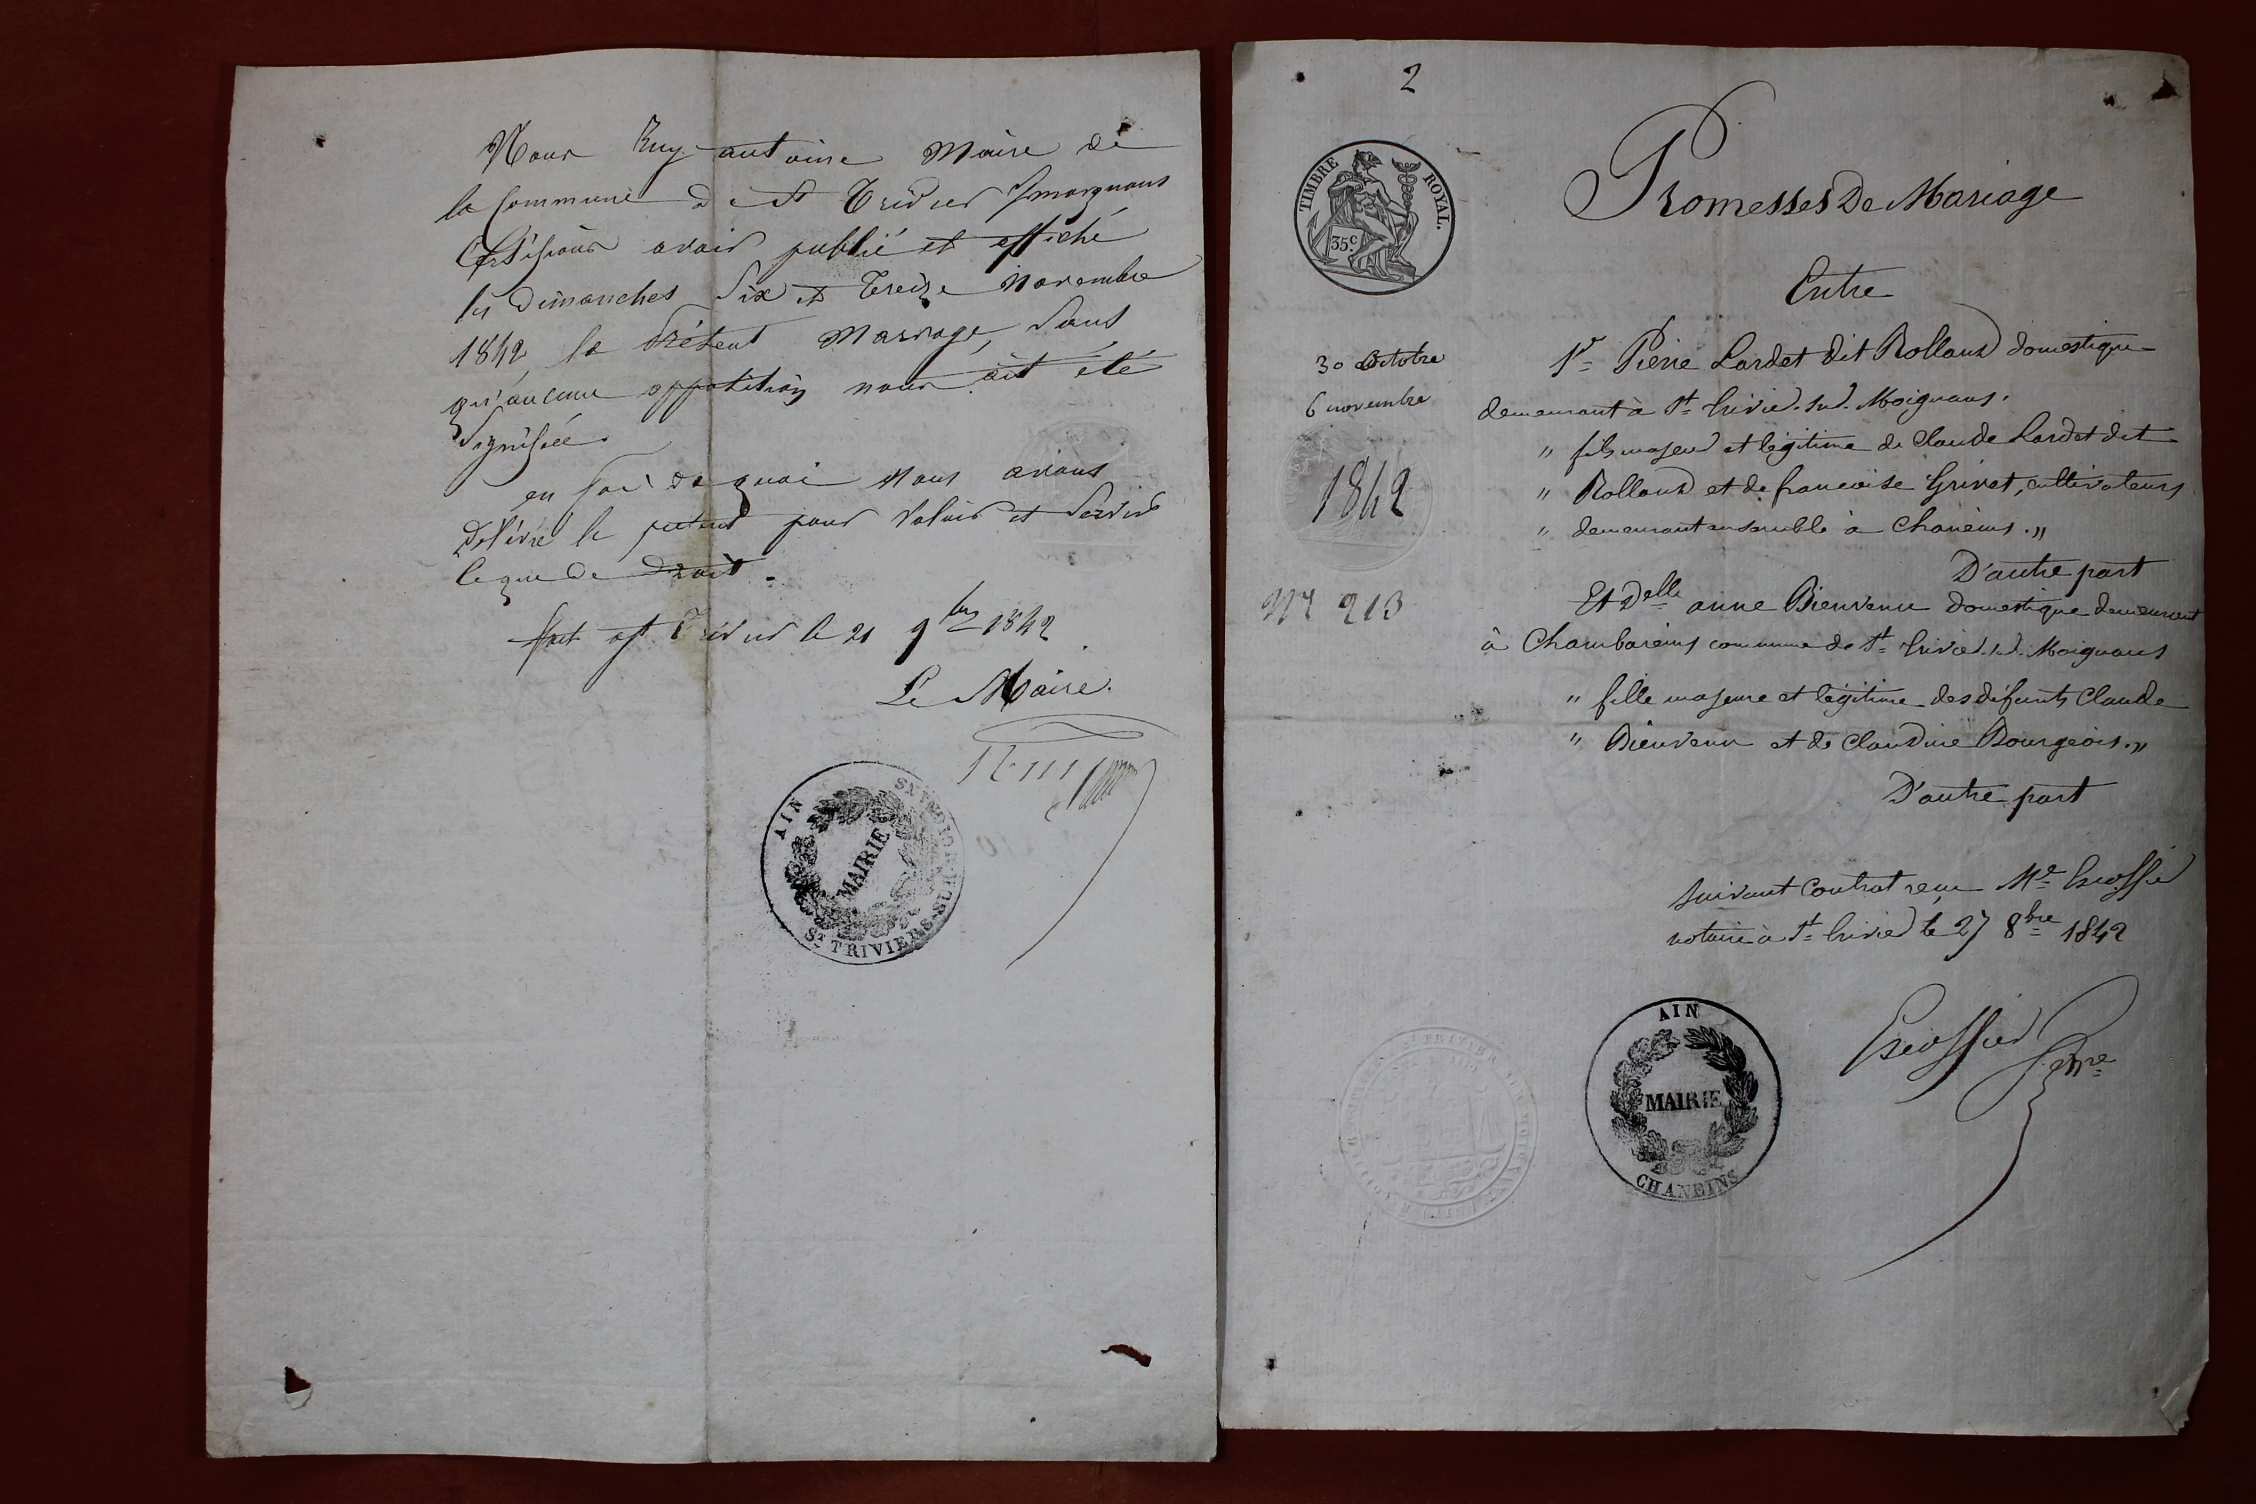 Nous Ruy antoine Maire de
la Commune de St Trivier Smoignans
Certifions avoir publié et affiché
les dimanches Six et Treize Novembre
1842, le Présent Mariage, Sans
qu'aucune opposition nous ait été
Signifiée.
en foi de quoi Nous avons
Délivré le présent pour Valoir et Servir
ce que de Droit.
fait à St Trivier le 21 9bre 1842
Le Maire.
AIN
MAIRIE
ST TRIVIERS-SUR-MOIGNANS
2
TIMBRE ROYAL.
35c.
Promesses De Mariage
Entre
30 Octobre
6 novembre
1842
No 213
1r Pierre Lardet dit Rolland domestique
demeurant à St Trivier. sur. Moignans.
" fils majeur et légitime de Claude Lardet dit
" Rolland et de francoise Grivet, cultivateurs
" demeurant ensemble à Chaneins. "
D'autre part
Et Delle anne Bienvenu domestique demeurant
à Chambareins commune de St Trivier. sur. Moignans
" fille majeure et légitime des défunts Claude
" Bienvenu et de Claudine Bourgeois. "
D'autre part
Suivant Contrat reçu Me Escoffier
notaire à St Trivier le 27 8bre 1842
Escoffier
AIN
MAIRIE
CHANEINS